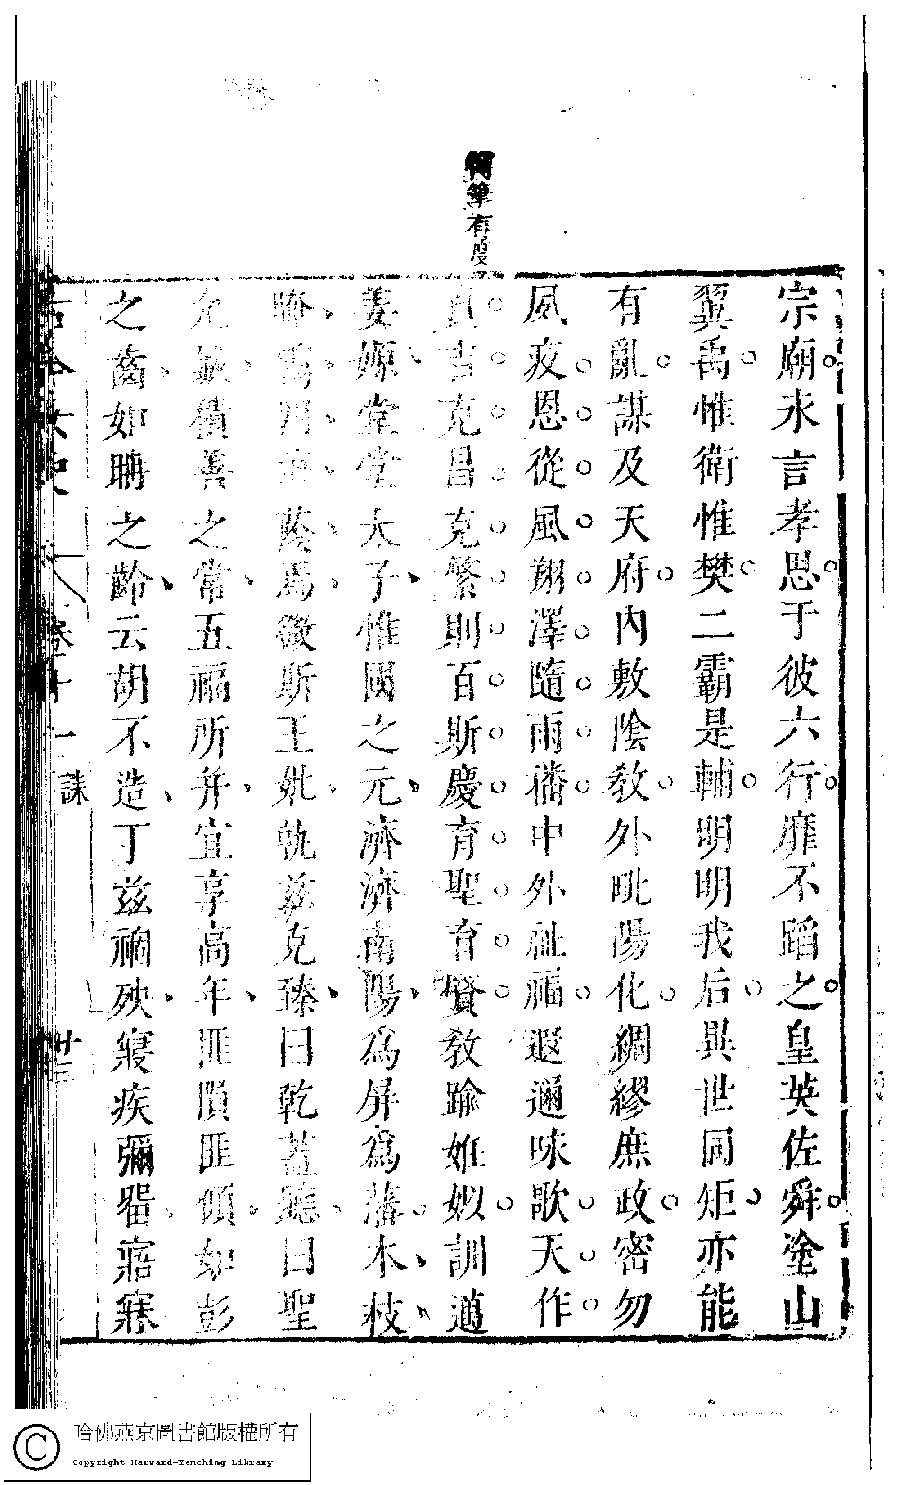 筆有度
宗廟永言孝思于彼六行靡不蹈之皇英佐舜塗山
翼禹惟衛惟樊二霸是輔明明我后異世同矩亦能
有亂謀及天府內敷陰教外毗陽化綢繆庶政密勿
夙夜恩從風翔澤隨雨播中外祉福遐邇咏歌天作
貞吉克昌克繁則百斯慶育聖育賢教踰妊姒訓邁
姜嫄堂堂太子惟國之元濟濟南陽為屏為藩本枝
晻蔭焉徽斯王妣孰茲克臻曰乾蓋聰曰聖
允敏積善之常五福所并宜享高年匪隕匪傾如彭
之齒如聃之齡云胡不造丁茲禍殃寢疾彌留寤寐
古今女史 卷十一 誄 廿三
哈佛燕京圖書館版權所有
Copyright Harvard-Yenching Library